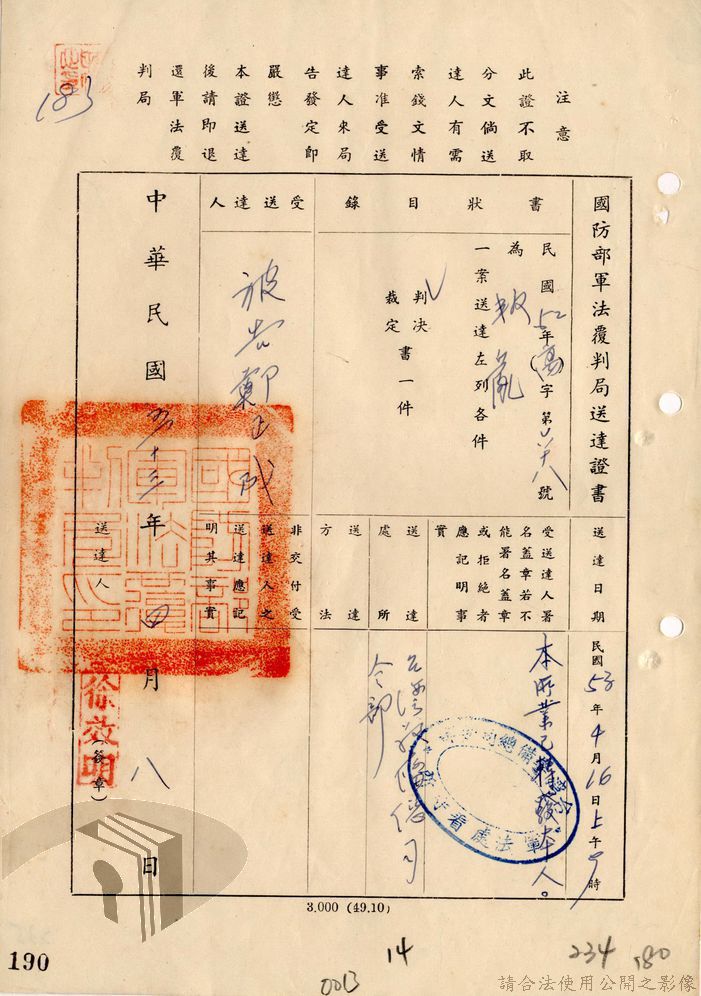 注意
此證不取
分文倘送
達人有需
索錢文情
事准受送
達人來局
告發定即
嚴懲
本證送達
後請即退
還軍法覆
判局
183
國防部軍法覆判局送達證書
書狀目錄
民國52年(高)字第 號
為叛亂
一案送達左列各件
判決
裁定
書一件
受送達人
被告鄭正成
中華民國五十三年四月八日
送達日期
民國53年4月16日上午9時
受送達人署
名蓋章若不
能署名蓋章
或拒絕者
應記明事
實
本所業已轉發本人。
送達處所
台灣警備總司
令部
送達方法
非交付受
送達人之
送達應記
明其事實
送達人
徐效明
(簽章)
台灣警備總司令部
軍法處看守所
3.000 (49.10)
190
0013
14
234
180
請合法使用公開之影像